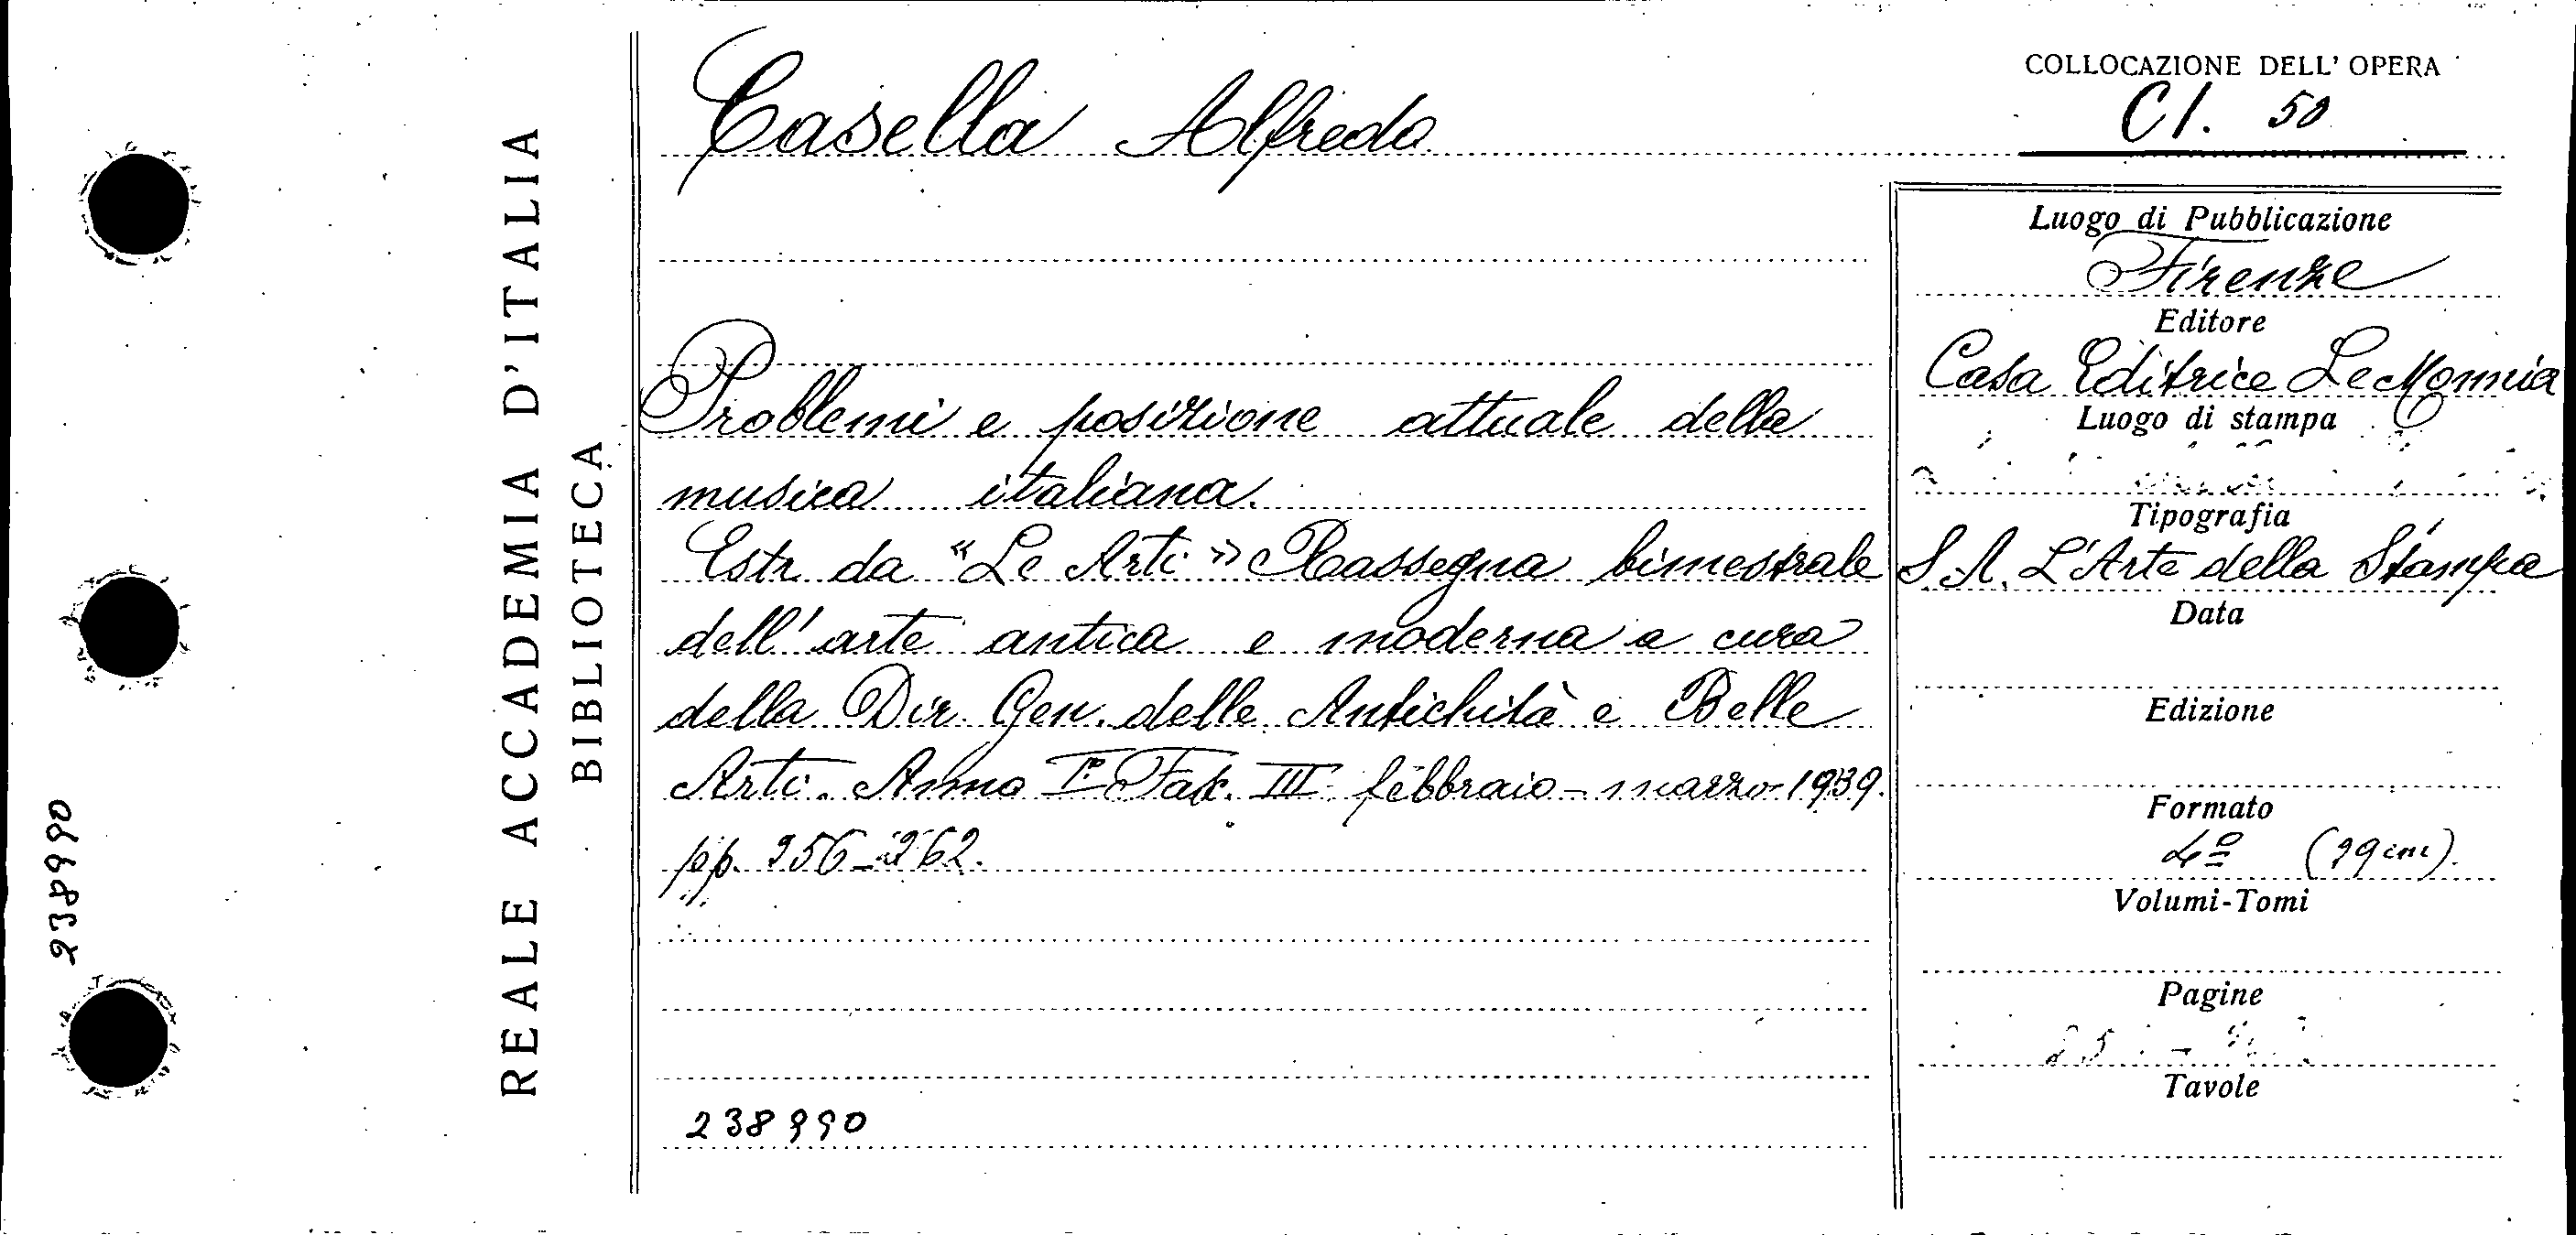 238990
REALE ACCADEMIA D'ITALIA
BIBLIOTECA
Casella Alfredo
Problemi e posizione attuale della
musica italiana.
Estr. da "Le Arti" Rassegna bimestrale
dell'arte antica e moderna a cura
della Dir. Gen. delle Antichità e Belle
Arti. Anno I° Fak. III febbraio-marzo 1939.
pp. 256-262.
238990
COLLOCAZIONE DELL'OPERA
Cl. 50
Luogo di Pubblicazione
Firenze
Editore
Casa Editrice Le Monnier
Luogo di stampa
Tipografia
S. A. L'Arte della Stampa
Data
Edizione
Formato
4º (29 cm).
Volumi-Tomi
Pagine
Tavole